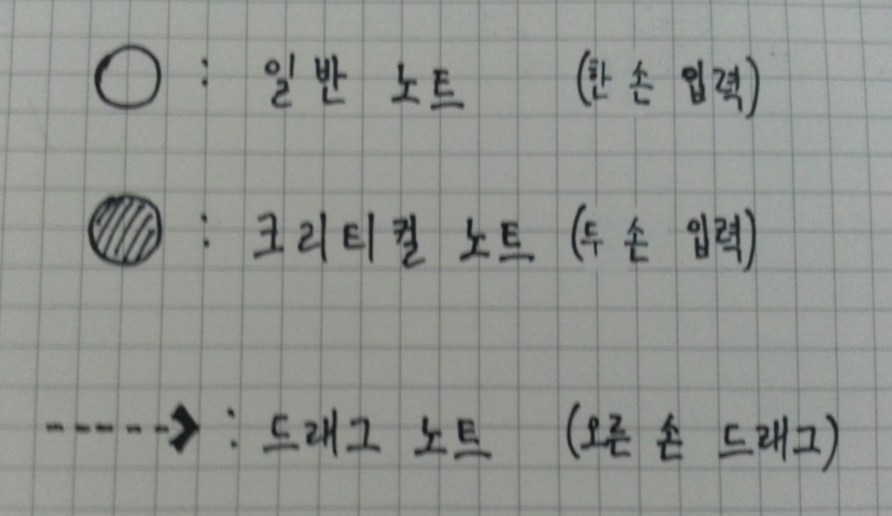 : 일반 노트 (한 손 입력)
: 크리티컬 노트 (두 손 입력)
: 드래그 노트 (오른 손 드래그)